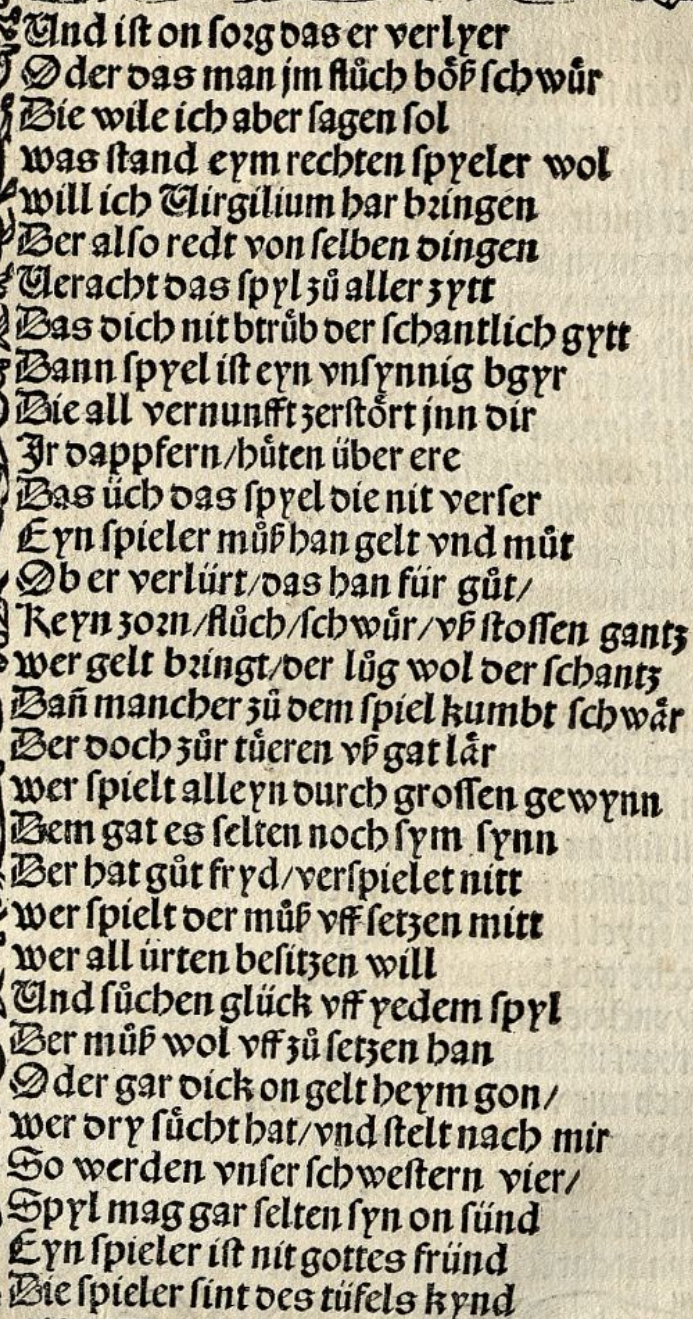 Und ist on sorg das er verlyer
Oder das man jm flůch bôß schwůr
Die wile ich aber sagen sol
was stand eym rechten spyeler wol
will ich Uirgilium har bringen
Der also redt von selben dingen
Ueracht das spyl zů aller zytt
Das dich nit btrůb der schantlich gytt
Dann spyel ist eyn vnsynnig bgyr
Die all vernunfft zerstôrt jnn dir
Ir dappfern/hůten über ere
Das üch das spyel die nit verser
Eyn spieler můß han gelt vnd můt
Ob er verlürt/das han für gůt/
Keyn zorn/flůch/schwůr/vß stossen gantz
wer gelt bringt/der lůg wol der schantz
Dañ mancher zů dem spiel kumbt schwår
Der doch zůr tůeren vß gat lår
wer spielt alleyn durch grossen gewynn
Dem gat es selten noch sym synn
Der hat gůt fryd/verspielet nitt
wer spielt der můß vff setzen mitt
wer all ürten besitzen will
Und sůchen glück vff yedem spyl
Der můß wol vff zů setzen han
Oder gar dick on gelt heym gon/
wer dry sůcht hat/vnd stelt nach mir
So werden vnser schwestern vier/
Spyl mag gar selten syn on sünd
Eyn spieler ist nit gottes fründ
Die spieler sint des tüfels kynd